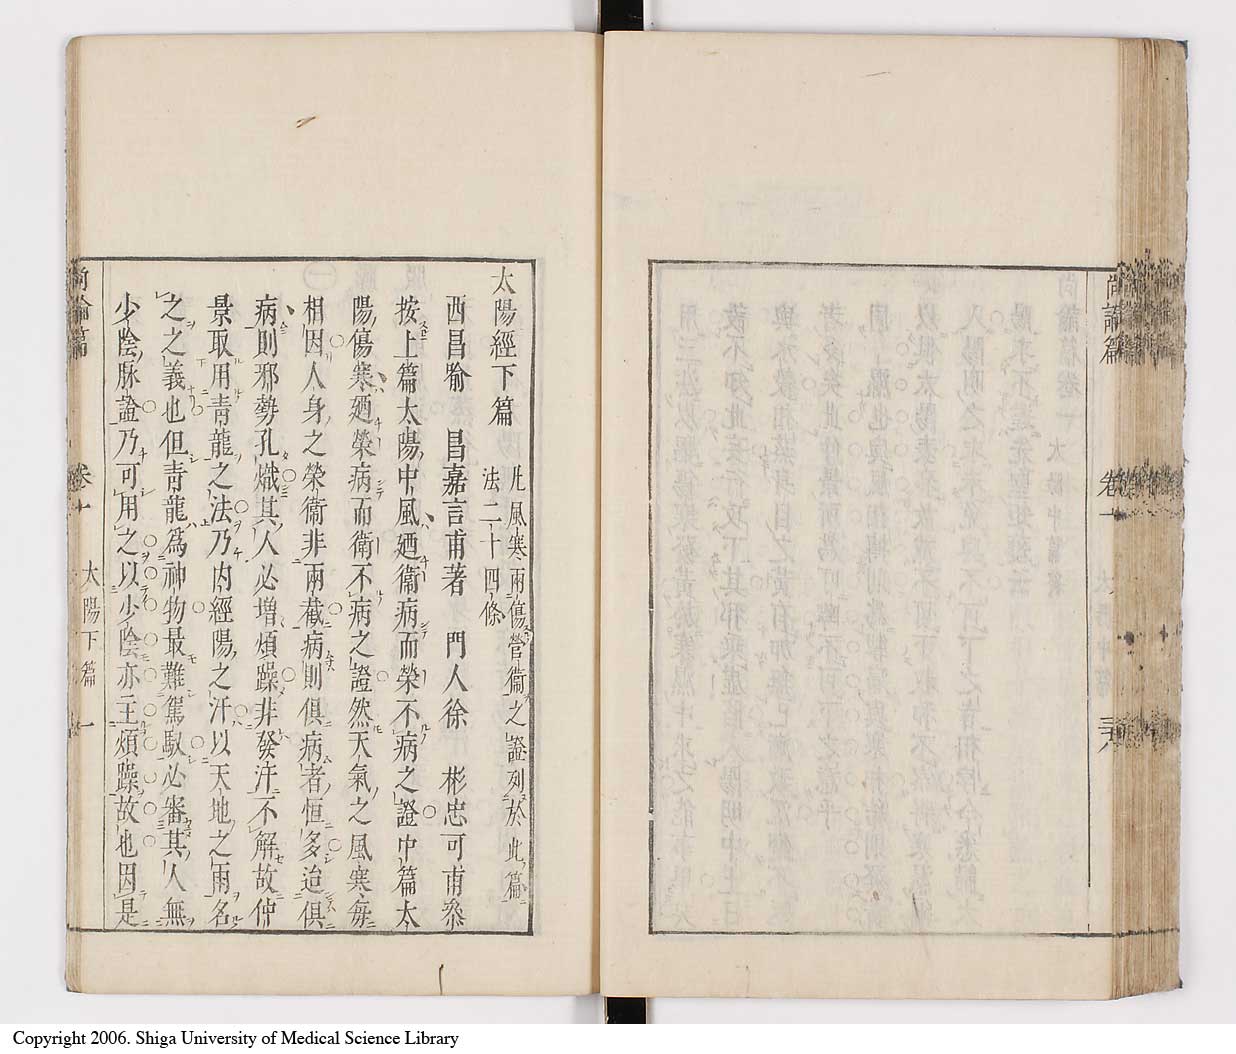 尚論篇 卷一 三十八
太陽經下篇
凡風寒兩傷營衞之證列於此篇
法二十四條
西昌喻 昌嘉言甫著 門人徐 彬忠可甫叅
按上篇太陽中風廼衞病而榮不病之證中篇太
陽傷寒廼榮病而衞不病之證然天氣之風寒每
相因人身之榮衞非兩截病則俱病者恒多迨俱
病則邪勢孔熾其人必增煩躁非發汗不解故仲
景取用青龍之法乃内經陽之汗以天地之雨名
之之義也但青龍爲神物最難駕馭必審其人無
少陰脉證乃可用之以少陰亦主煩躁故也因是
尚論篇 卷一 太陽下篇 一
Copyright 2006. Shiga University of Medical Science Library